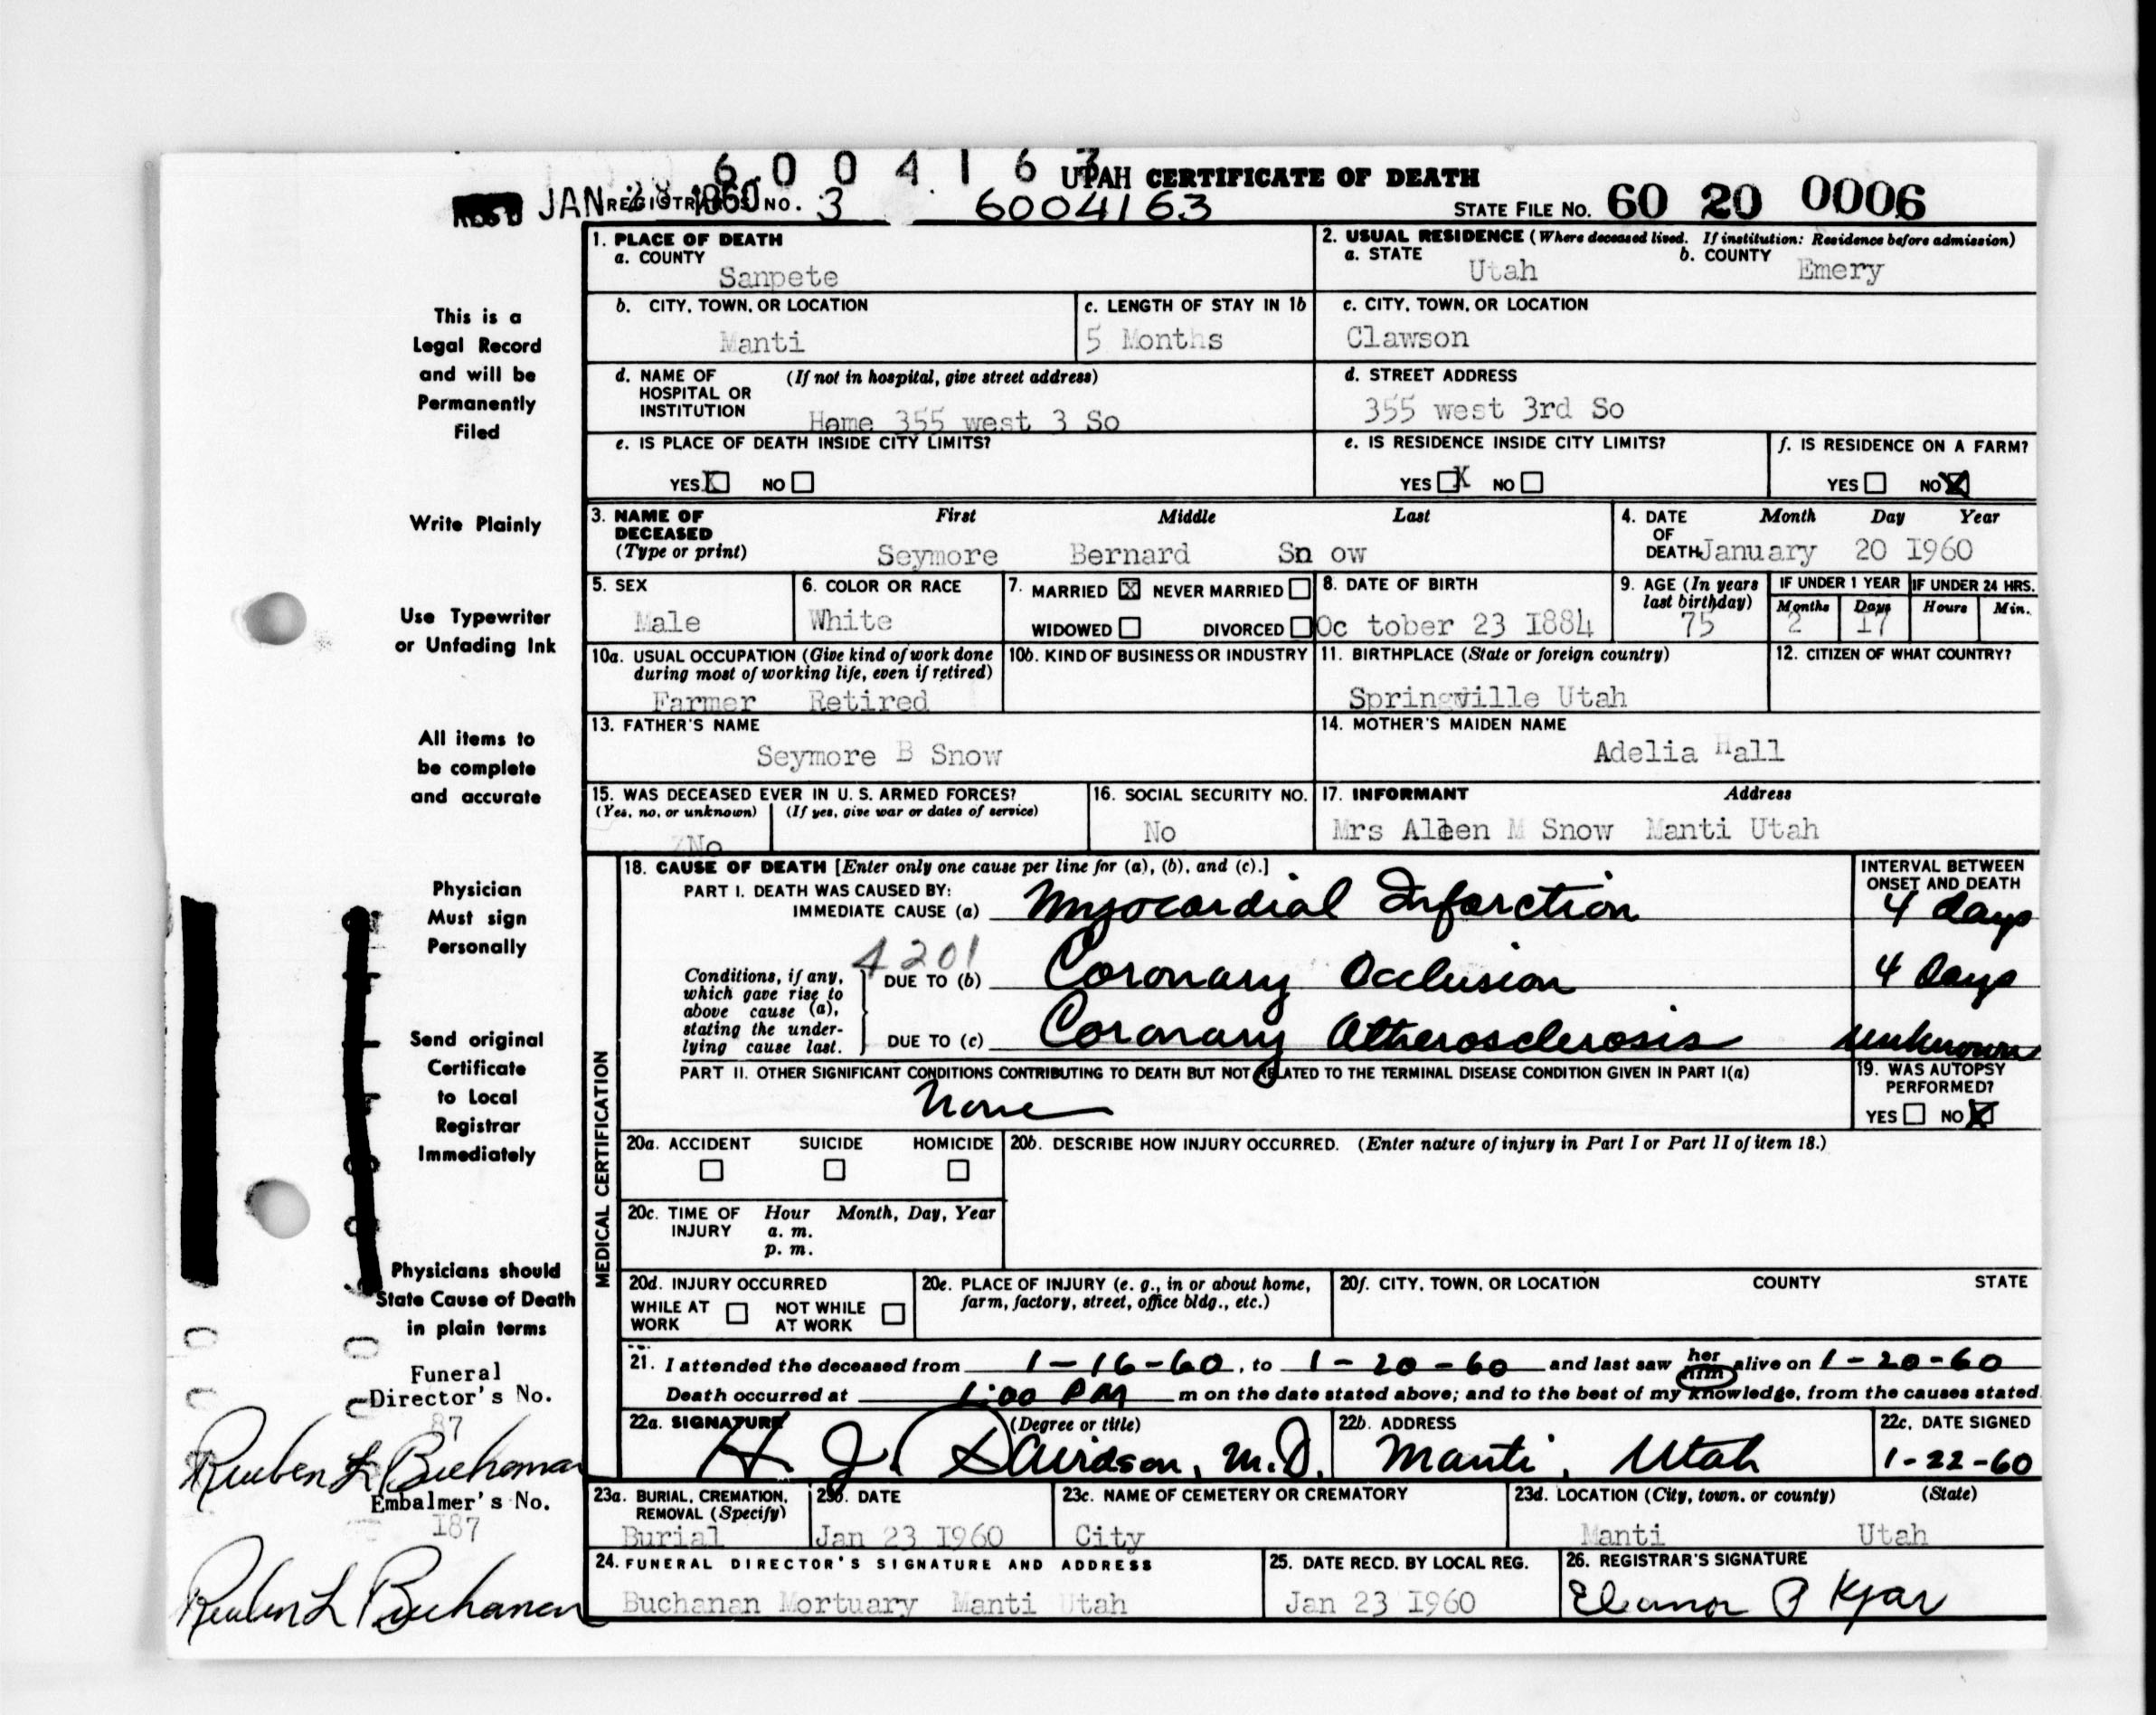 6004163
UTAH CERTIFICATE OF DEATH
REC'D JAN 28 1960 REGISTRAR'S NO. 3 6004163 STATE FILE NO. 60 20 0006
This is a
Legal Record
and will be
Permanently
Filed
Write Plainly
Use Typewriter
or Unfading Ink
All items to
be complete
and accurate
Physician
Must sign
Personally
Send original
Certificate
to Local
Registrar
Immediately
Physicians should
State Cause of Death
in plain terms
Funeral
Director's No.
87
Reuben L Buchanan
Embalmer's No.
187
Reuben L Buchanan
1. PLACE OF DEATH
a. COUNTY
Sanpete
2. USUAL RESIDENCE (Where deceased lived. If institution: Residence before admission)
a. STATE Utah b. COUNTY Emery
b. CITY, TOWN, OR LOCATION
Manti
c. LENGTH OF STAY IN 1b
5 Months
c. CITY, TOWN, OR LOCATION
Clawson
d. NAME OF (If not in hospital, give street address)
HOSPITAL OR
INSTITUTION Home 355 west 3 So
d. STREET ADDRESS
355 west 3rd So
e. IS PLACE OF DEATH INSIDE CITY LIMITS?
YES X NO
e. IS RESIDENCE INSIDE CITY LIMITS?
YES X NO
f. IS RESIDENCE ON A FARM?
YES NO X
3. NAME OF First Middle Last
DECEASED
(Type or print) Seymore Bernard Sn ow
4. DATE Month Day Year
OF
DEATH January 20 1960
5. SEX
Male
6. COLOR OR RACE
White
7. MARRIED X NEVER MARRIED
WIDOWED DIVORCED
8. DATE OF BIRTH
Oc tober 23 1884
9. AGE (In years
last birthday)
75
IF UNDER 1 YEAR
Months Days
2 17
IF UNDER 24 HRS.
Hours Min.
10a. USUAL OCCUPATION (Give kind of work done
during most of working life, even if retired)
Farmer Retired
10b. KIND OF BUSINESS OR INDUSTRY
11. BIRTHPLACE (State or foreign country)
Springville Utah
12. CITIZEN OF WHAT COUNTRY?
13. FATHER'S NAME
Seymore B Snow
14. MOTHER'S MAIDEN NAME
Adelia Hall
15. WAS DECEASED EVER IN U. S. ARMED FORCES?
(Yes, no, or unknown) (If yes, give war or dates of service)
No
16. SOCIAL SECURITY NO.
No
17. INFORMANT Address
Mrs Aleen M Snow Manti Utah
MEDICAL CERTIFICATION
18. CAUSE OF DEATH [Enter only one cause per line for (a), (b), and (c).]
PART I. DEATH WAS CAUSED BY:
IMMEDIATE CAUSE (a) Myocardial Infarction
INTERVAL BETWEEN
ONSET AND DEATH
4 days
4201
Conditions, if any,
which gave rise to
above cause (a),
stating the under-
lying cause last.
DUE TO (b) Coronary Occlusion 4 days
DUE TO (c) Coronary Atherosclerosis unknown
PART II. OTHER SIGNIFICANT CONDITIONS CONTRIBUTING TO DEATH BUT NOT RELATED TO THE TERMINAL DISEASE CONDITION GIVEN IN PART I(a)
None
19. WAS AUTOPSY
PERFORMED?
YES NO X
20a. ACCIDENT SUICIDE HOMICIDE
20b. DESCRIBE HOW INJURY OCCURRED. (Enter nature of injury in Part I or Part II of item 18.)
20c. TIME OF Hour Month, Day, Year
INJURY a. m.
p. m.
20d. INJURY OCCURRED
WHILE AT NOT WHILE
WORK AT WORK
20e. PLACE OF INJURY (e. g., in or about home,
farm, factory, street, office bldg., etc.)
20f. CITY, TOWN, OR LOCATION COUNTY STATE
21. I attended the deceased from 1-16-60, to 1-20-60 and last saw her him alive on 1-20-60
Death occurred at 1:00 PM m on the date stated above; and to the best of my knowledge, from the causes stated
22a. SIGNATURE (Degree or title)
H. J. Davidson, M.D.
22b. ADDRESS
Manti, Utah
22c. DATE SIGNED
1-22-60
23a. BURIAL, CREMATION,
REMOVAL (Specify)
Burial
23b. DATE
Jan 23 1960
23c. NAME OF CEMETERY OR CREMATORY
City
23d. LOCATION (City, town, or county) (State)
Manti Utah
24. FUNERAL DIRECTOR'S SIGNATURE AND ADDRESS
Buchanan Mortuary Manti Utah
25. DATE RECD. BY LOCAL REG.
Jan 23 1960
26. REGISTRAR'S SIGNATURE
Eleanor P Kjar